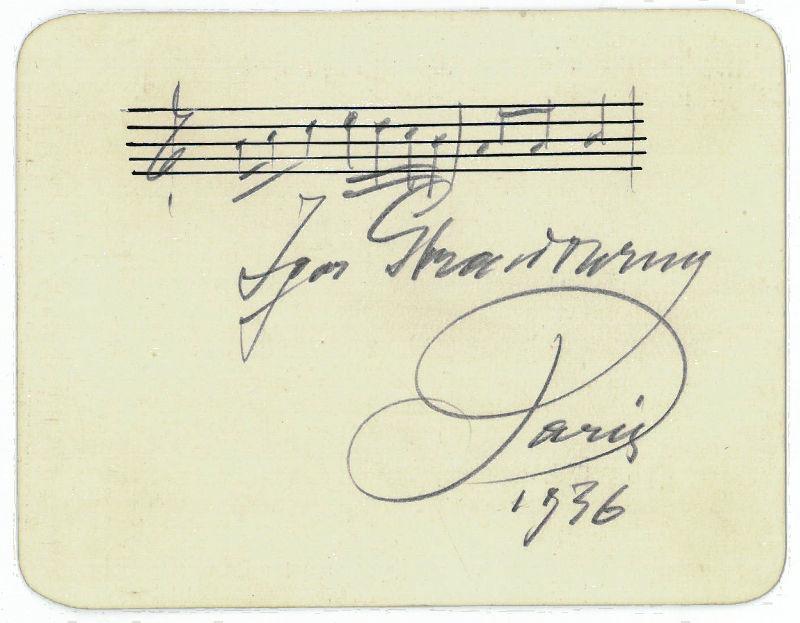 Igor Strawinsky
Paris
1936